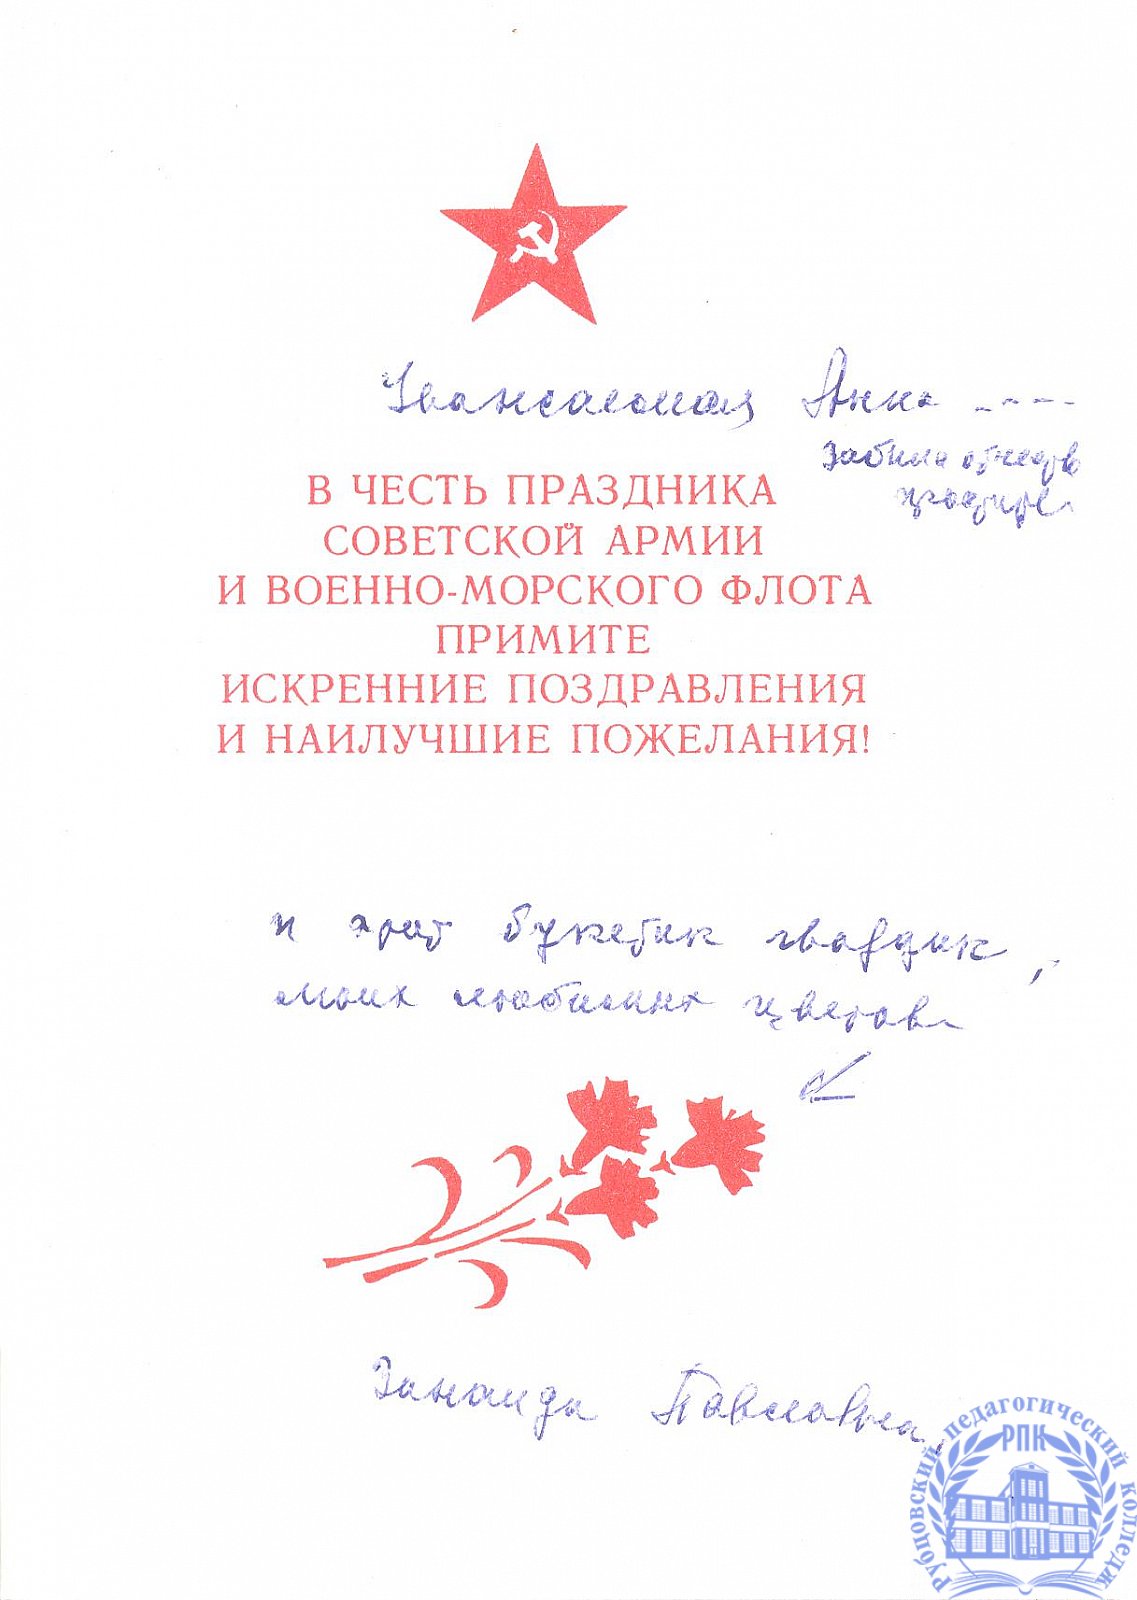 Уважаемая Анна ----
Забыла отчество
простите.
В ЧЕСТЬ ПРАЗДНИКА
СОВЕТСКОЙ АРМИИ
И ВОЕННО-МОРСКОГО ФЛОТА
ПРИМИТЕ
ИСКРЕННИЕ ПОЗДРАВЛЕНИЯ
И НАИЛУЧШИЕ ПОЖЕЛАНИЯ!
и этот букетик гвоздик,
моих любимых цветов.
Зинаида Павловна.
Рубцовский педагогический колледж
РПК